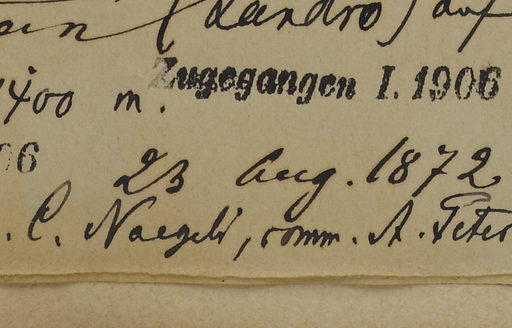 (Landro) auf
1400 m.
Zugegangen I. 1906
06
23 Aug. 1872
. C. Naegeli, comm. A. Peter